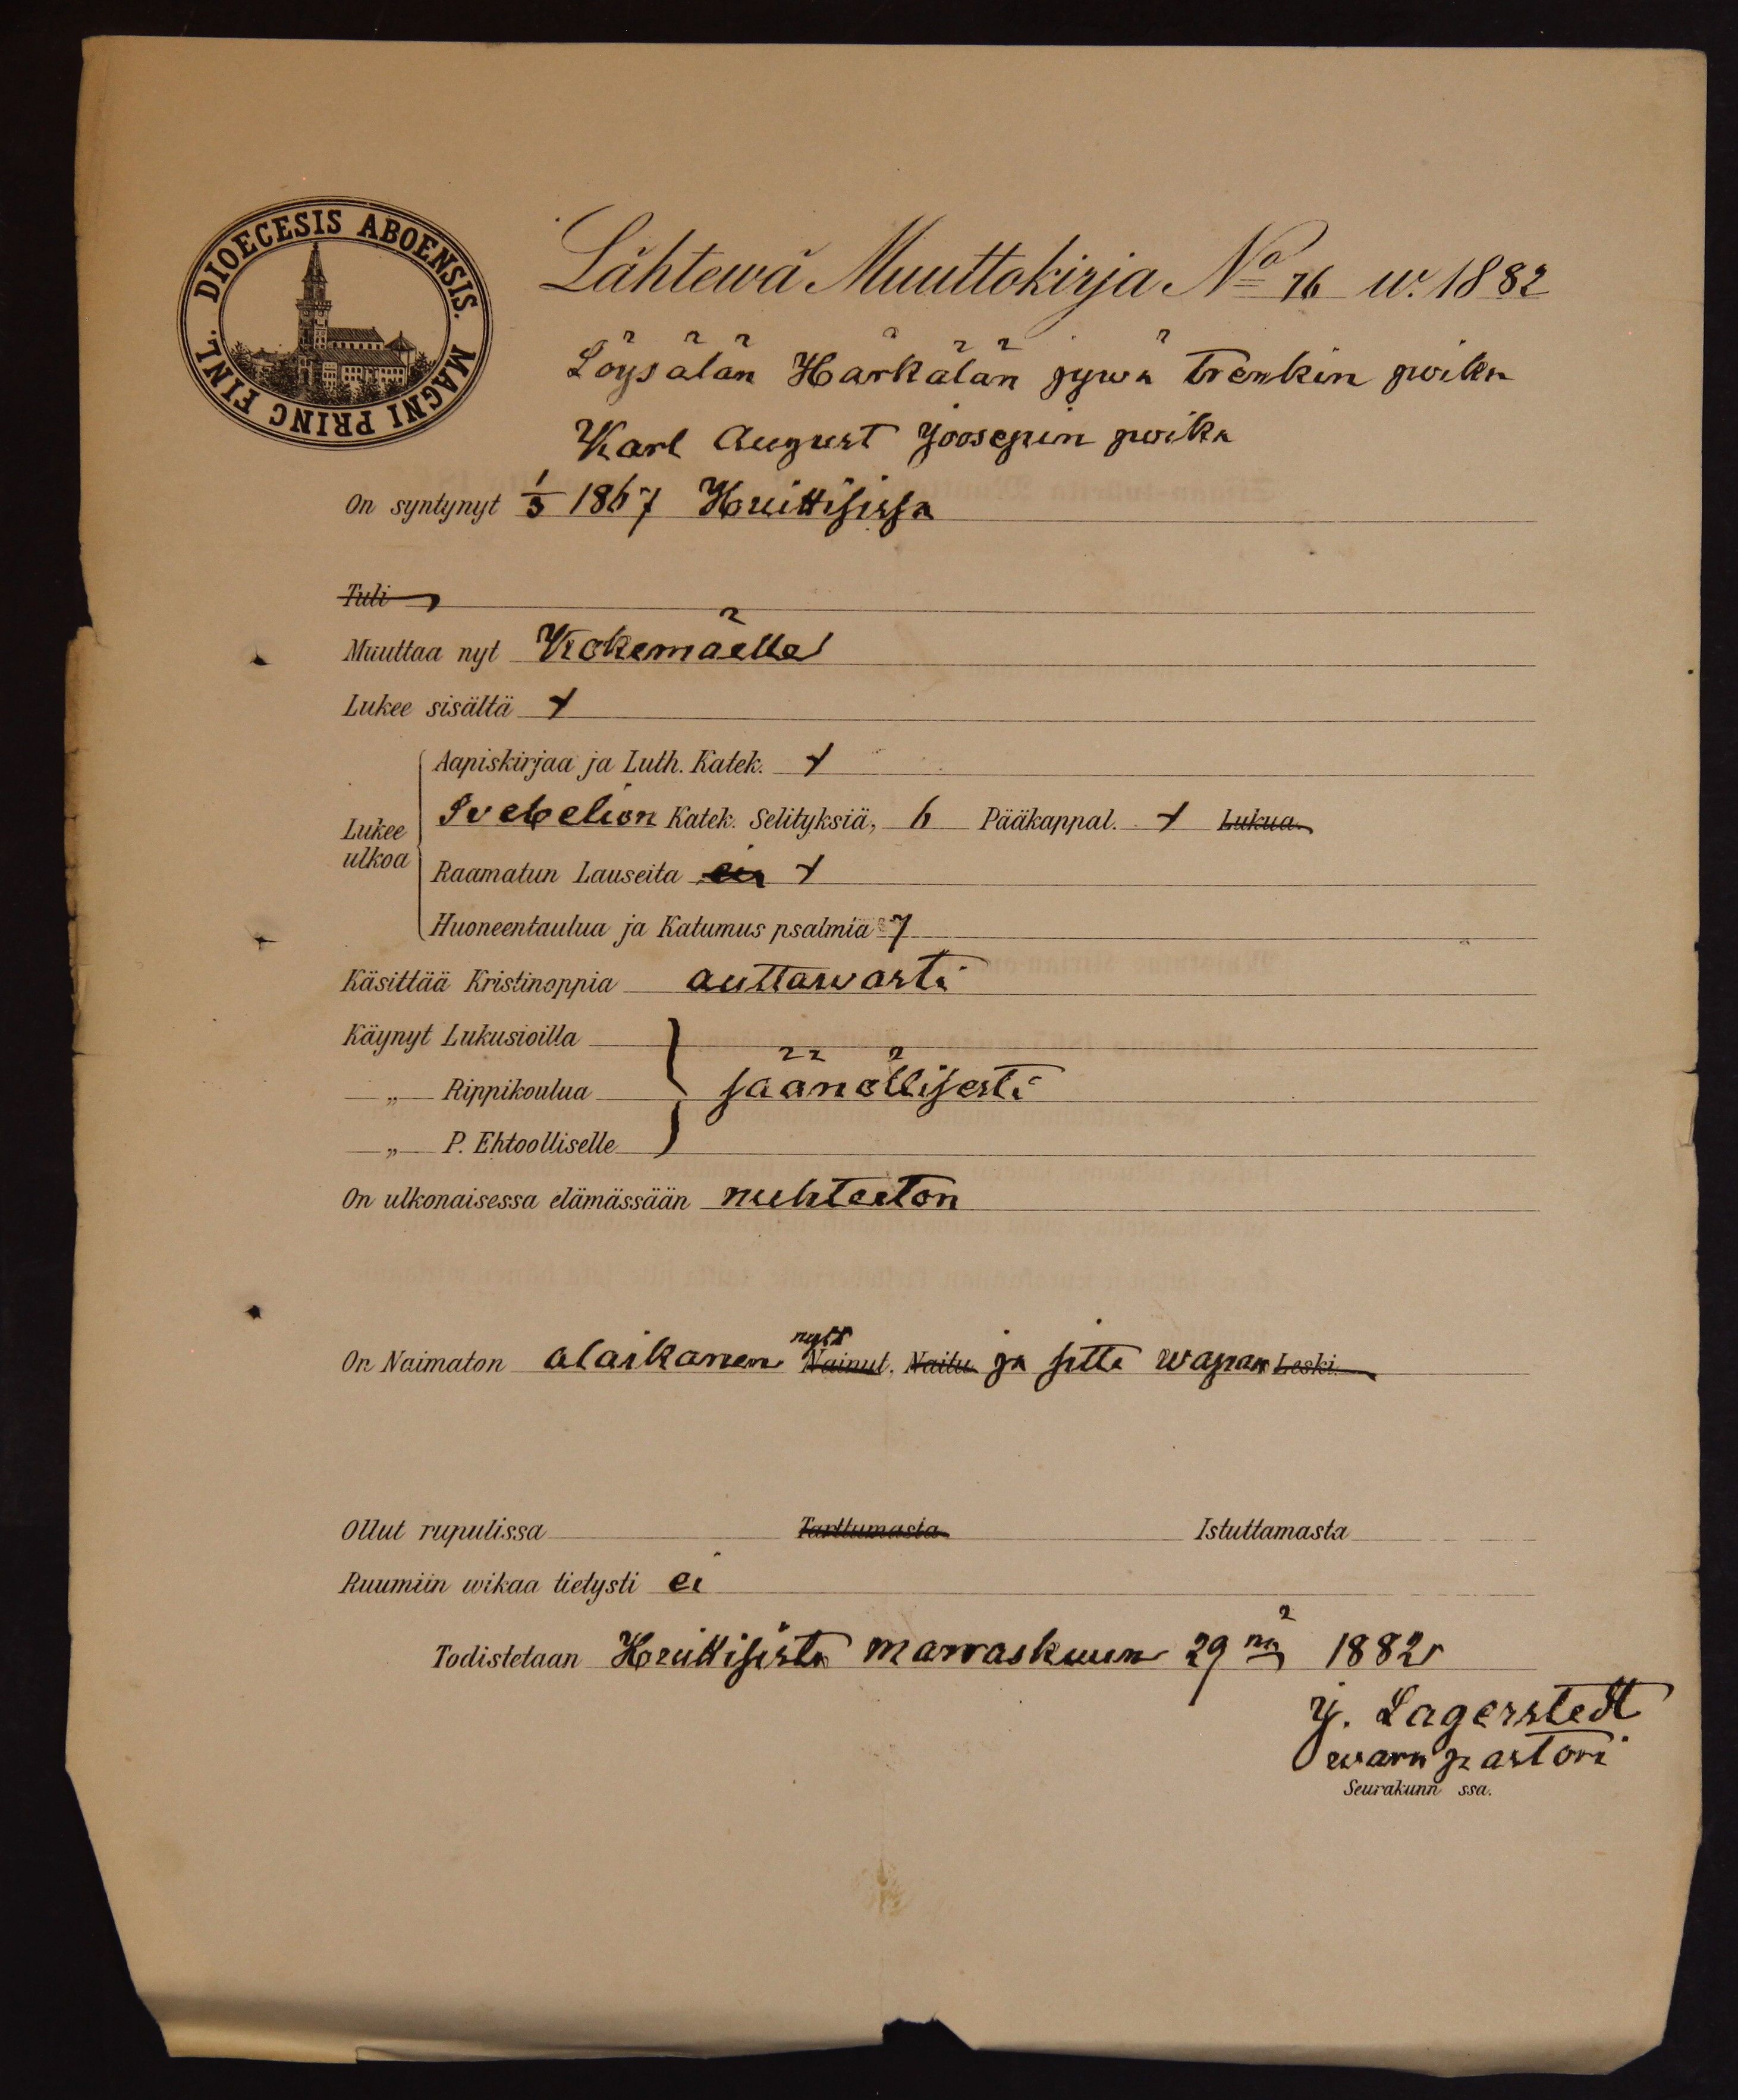 DIOECESIS ABOENSIS. MAGNI PRINC FINL.
Lähtewä Muuttokirja No 76 w. 1882
Löysälän Härkälän hywä trenkin poika
Karl August Joosepin poika
On syntynyt 1/3 1867 Huittisissa
Tuli
Muuttaa nyt Kokemäelle
Lukee sisältä +
Aapiskirjaa ja Luth. Katek. +
Lukee ulkoa
Svebelion Katek. Selityksiä, 6 Pääkappal. + Lukua.
Raamatun Lauseita ei +
Huoneentaulua ja Katumus psalmia 7
Käsittää Kristinoppia auttawasti
Käynyt Lukusioilla
„ Rippikoulua säänöllisesti
„ P. Ehtoolliselle
On ulkonaisessa elämässään nuhteeton
On Naimaton alaikanen nytt Nainut, Naitu ja sitte wapaa Leski.
Ollut rupulissa Tarttumasta Istuttamasta
Ruumiin wikaa tietysti ei
Todistetaan Huittisista marraskuun 29 nä 1882
J. Lagerstedt
wara pastori
Seurakunn ssa.